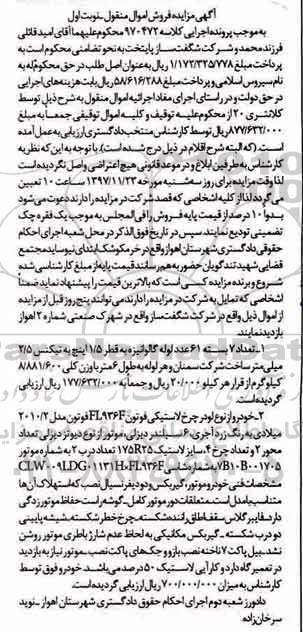 آگهی مزایده فروش اموال منقول _نوبت اول
به موجب پرونده اجرایی کلاسه ۹۷۰۴۷۲ محکوم علیهما آقای امید قائلی
فرزند محمد و شرکت شگفت ساز پایتخت به نحو تضامنی محکوم است به
پرداخت مبلغ ۱/۱۷۲/۳۲۵/۷۷۸ ریال به عنوان اصل طلب در حق محکوم له به
نام سیروس اسلامی و پرداخت مبلغ ۵۸/۶۱۶/۲۸۸ ریال بابت هزینه های اجرایی
در حق دولت و در راستای اجرای مفاد اجرائیه اموال منقول به شرح ذیل توسط
کلانتری ۲۰ از محکوم علیه توقیف و کلیه اموال توقیفی جمعا به مبلغ
۸۷۷/۶۳۲/۰۰۰ ریال توسط کارشناس منتخب دادگستری ارزیابی به عمل آمده
است. (که البته شرح اقلام در ذیل درج شده است). با توجه به این که نظریه
کارشناس به طرفین ابلاغ و در موعد قانونی هیچ اعتراضی واصل نگردیده است
لذا وقت مزایده برای روز سه شنبه مورخه ۱۳۹۷/۱۱/۲۳ ساعت ۱۰ تعیین
می گردد لذا از کلیه اشخاصی که قصد شرکت در مزایده را دارند دعوت می شود
بدوا ۱۰ درصد از قیمت پایه فروش را فی المجلس به موجب یک فقره چک
تضمینی تودیع نمایند. سپس در تاریخ فوق الذکر در محل شعبه اجرای احکام
حقوقی دادگستری شهرستان اهواز واقع در خرمکوشک ابتدای نیوساید مجتمع
قضایی شهید تندگویان حضور به هم رسانند قیمت پایه از مبلغ کارشناسی شده
شروع و برنده مزایده کسی است که بالاترین قیمت را پیشنهاد نماید ضمناً
اشخاصی که تمایل به شرکت در مزایده را دارند می توانند پنج روز قبل از مزایده
از اموال ذیل واقع در شرکت شگفت ساز واقع در شهرک صنعتی شماره ۲ اهواز
بازدید نمایند.
۱_ تعداد ۷ بسته ۶۱ عدد لوله گالوانیزه به قطر ۱/۵ اینچ به تیکنس ۲/۵
میلی متر ساخت شرکت سمنان و هر لوله به طول ۶ متر با وزن کلی ۸/۸۸۱/۶۰۰
کیلوگرم از قرار هر کیلو ۲۰/۰۰۰ ریال و جمعا به ۱۷۷/۶۳۲/۰۰۰ ریال ارزیابی
گردیده است.
۲_ خودرو از نوع لودر چرخ لاستیکی فوتون FL۹۳۶F فوتون مدل ۲۰۱۰/۲
میلادی به رنگ زرد آجری، ۶ سیلندر دیزلی، موتور از نوع دیوتز دیزلی تعداد
محور ۲ و تعداد چرخ ۴، سایز لاستیک ۱۷۵R۲۵ تعداد درب ۲ به شماره موتور
۷B۱۰B۰۰۱۷۰۵ به شماره شاسی CLW۰۰۹LDG۰۱۱۳۱H۰FL۹۳۶F
مشخصات فنی خودرو موتور، گیربکس و دو دیفرنسیال نصب که استهلاک آن ها
متناسب با مدل است. متعلقات دور موتور کامل. گوشه راست حفاظ موتور زدگی
دارد فایبرگلاس سقف اطاق راننده شکسته. چرخ خطر شکسته. شیشه پایینی
دو درب شکسته. گیربکس مکانیکی به لحاظ عدم شارژ باطری موتور روشن
نشد. بیل پاکت ۷ ناخنه نصب بازو و جک های پاکت نصب. موتور نیاز به بازدید
در تعمیرگاه دارد و کارآیی لاستیک ۵۰ درصد می باشد. خودرو فوق توسط
کارشناس به میزان ۷۰۰/۰۰۰/۰۰۰ ریال ارزیابی گردیده است.
دادورز شعبه دوم اجرای احکام حقوق دادگستری شهرستان اهواز _ نوید
سرخان زاده